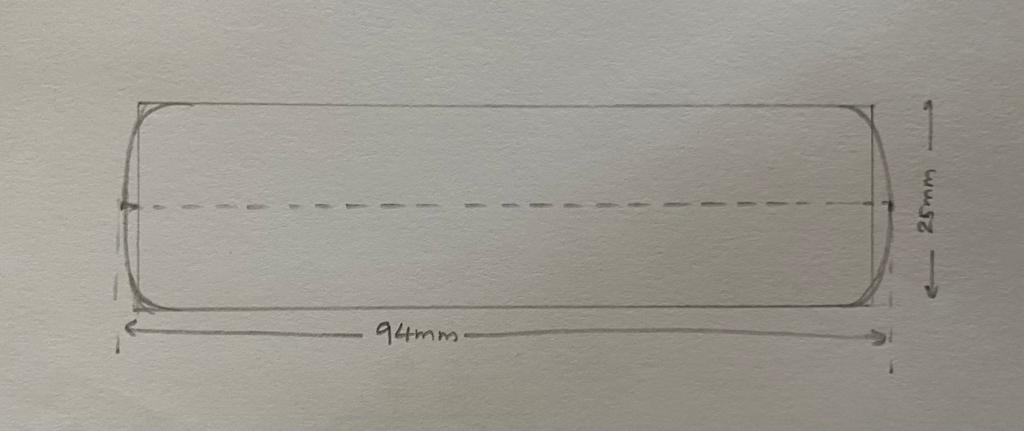 25mm
94mm